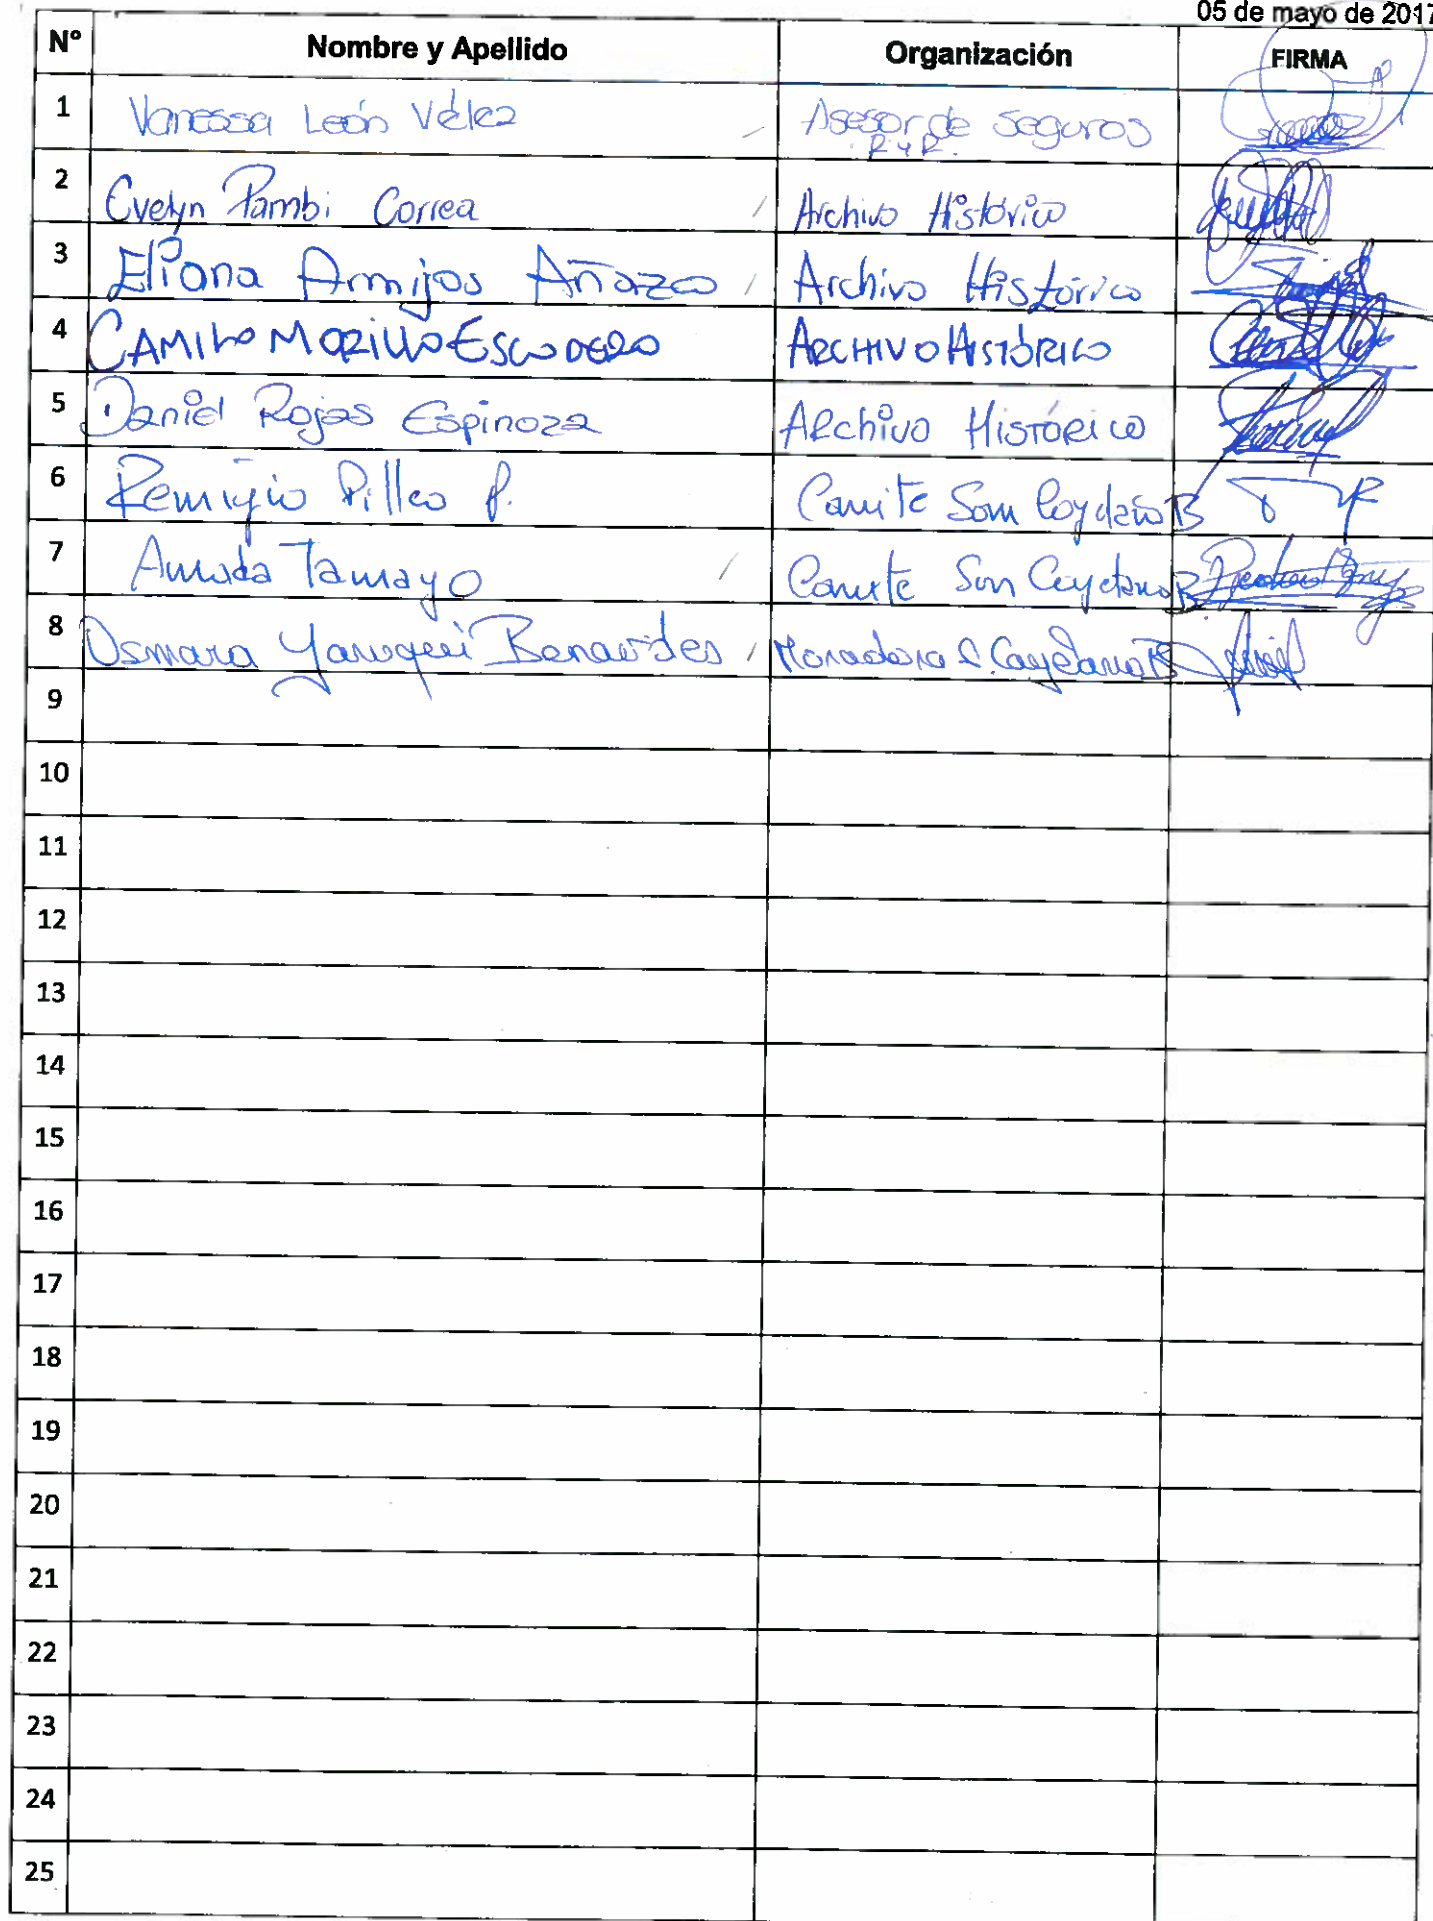 05 de mayo de 2017
N° Nombre y Apellido Organización FIRMA
1 Vanessa León Vélez Asesor de Seguros
R y R.
2 Evelyn Pambi Correa Archivo Histórico
3 Eliana Armijos Añazco Archivo Histórico
4 CAMILO MORILLO ESCUDERO ARCHIVO HISTÓRICO
5 Daniel Rojas Espinoza Archivo Histórico
6 Remigio Pilleo P. Comite San Caydano B
7 Amada Tamayo Comite San Cayetano B
8 Osmara Yanuqui Benavides Moradora S. Cayetano B
9
10
11
12
13
14
15
16
17
18
19
20
21
22
23
24
25